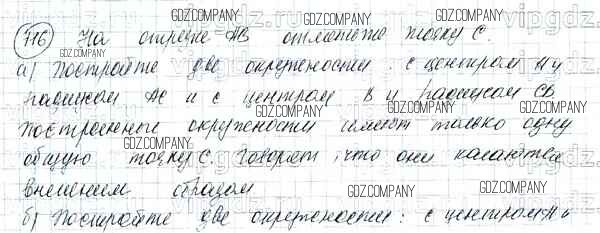 716 На отрезке АВ отметьте точку С.
а) Постройте две окружности: с центром А и
радиусом АС и с центром В и радиусом СВ.
Построенные окружности имеют только одну
общую точку С. Говорят, что они касаются
внешним образом
б) Постройте две окружности: с центром А и
GDZ.COMPANY
GDZ.COMPANY
GDZ.COMPANY
GDZ.COMPANY
GDZ.COMPANY
GDZ.COMPANY
GDZ.COMPANY
GDZ.COMPANY
vipgdz